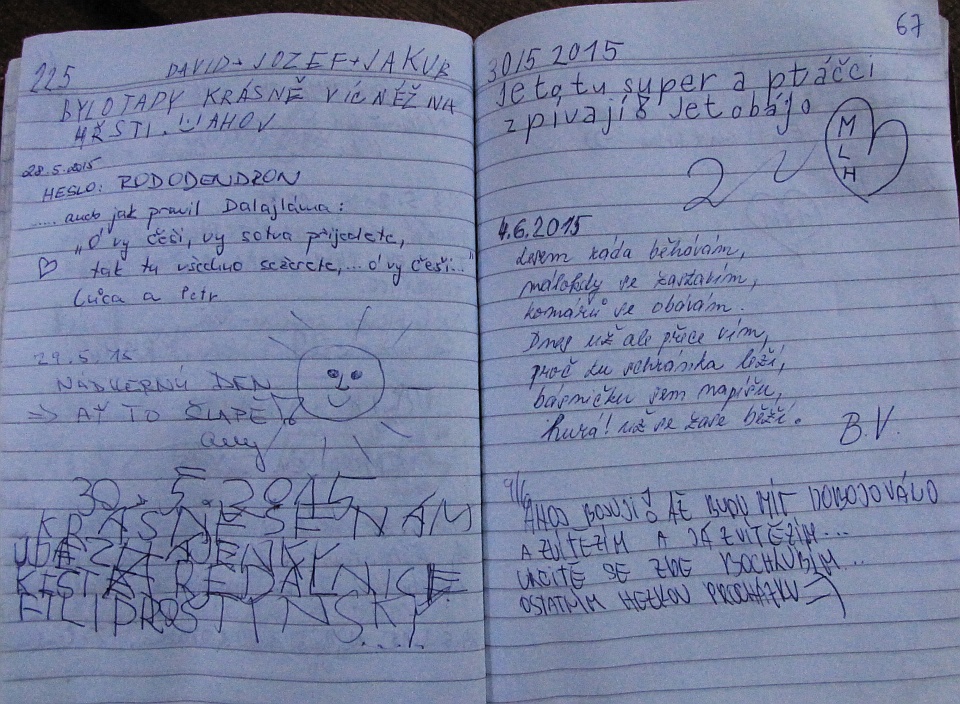 225 DAVID + JOZEF + JAKUB
BYLO TADY KRÁSNĚ VÍC NĚŽ NA
HŘŠTI. AHOV
28.5.2015
HESLO: RODODENDRON
..... aneb jak pravil Dalajláma:
"Ó vy češi, vy sotva přijedete,
tak tu všechno sežerete,... ó vy češi..."
Lůca a Petr
29.5.15
NÁDHERNÝ DEN
=> AŤ TO ŠLAPE
30.5.2015
KRÁSNĚ SE NÁM
FILIP ROSTÝNSKÝ
67
30/5 2015
Je to tu super a ptáčci
zpívají8 Jetobájo
M
L
H
2
4.6.2015
Lesem ráda běhávám,
málokdy se zastavím,
komárů se obávám.
Dnes už ale přece vím,
proč tu schránka leží,
básničku sem napíšu,
hurá! už se zase běží.
B.V.
9/6
AHOJ BOJUJI! AŽ BUDU MÍT DOBOJOVÁNO
A ZVÍTĚZÍM A JÁ ZVÍTĚZÍM...
URČITĚ SE ZDE POCHLUBÍM...
OSTATNÍM HEZKOU PROCHÁZKU